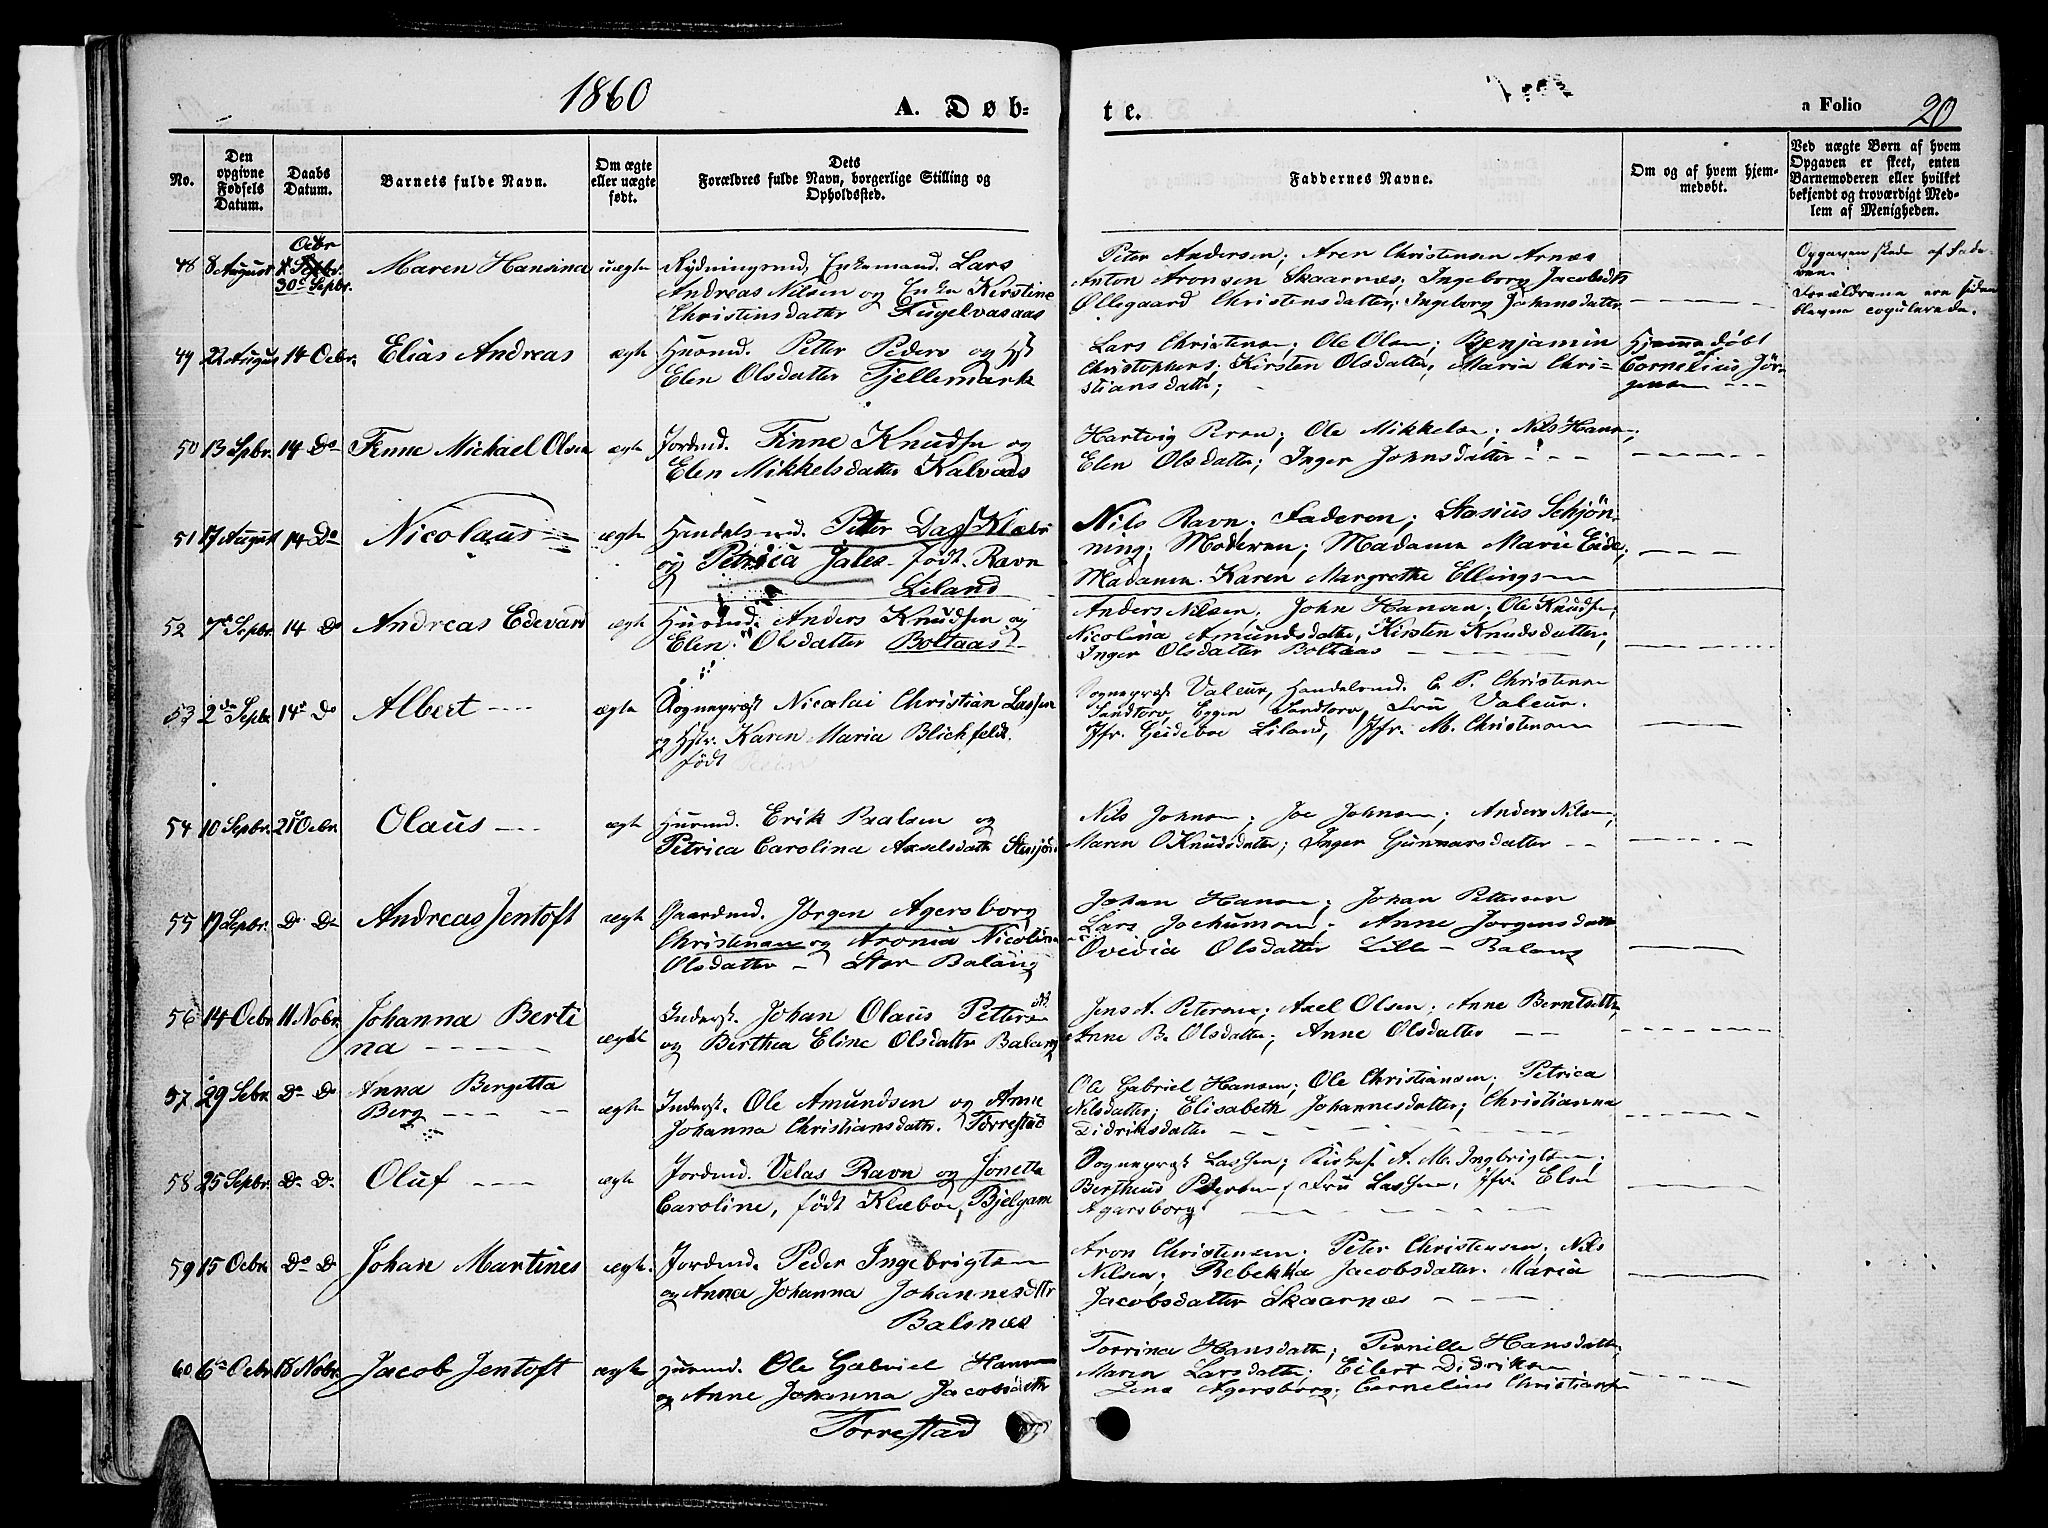 1860
A. Døb=
te.
a Folio 20
No.
Den opgivne Fødsels Datum.
Daabs Datum.
Barnets fulde Navn.
Om ægte eller uægte født.
Dets Forældres fulde Navn, borgerlige Stilling og Opholdssted.
Faddernes Navne.
Om og af hvem hjemmedøbt.
Ved uægte Børn af hvem Opgaven er skeet, enten Barnemoderen eller hvilket bekjendt og troværdigt Medlem af Menigheden.
48 8 August Octbr 30 Sepbr. Maren Hansina uægte Rydningsmd, Enkemand Lars
Andreas Nilsen og Enke Kirstine
Christensdatter Fugelvasaas
Peter Andersen; Aren Christensen Arnæs
Anton Aronsen Skaarnæs; Ingeborg Jacobsdtr
Ollegaard Christensdatter; Ingeborg Johansdatter
Opgaven skede af Fade-
ren.
Forældrene ere siden
blevne copulerede.
49 22 August 14 Octbr. Elias Andreas ægte Husmd. Petter Peders og Hst
Elen Olsdatter Fjellemark
Lars Christensen; Ole Olsen; Benjamin
Christophers; Kirsten Olsdatter, Maria Chri=
stiansdatter;
Hjemmedøbt
af Cornelius Jør
gensen
50 13 Sepbr. 14 Do Finne Michael Olsen ægte Jordmd. Finne Knudsen og
Elen Mikkelsdatter Kalvaas
Hartvig Pron; Ole Mikkelsen; Nils Hansen;
Elen Olsdatter; Inger Johnsdatter
51 17 August 14 Do Nicolaus ægte Handelsmd. Peter Dass Klæbo
og Petrica Jales født Ravn
Liland
Nils Ravn; Faderen; Stasius Schjøn-
ning; Moderen; Madame Marie Eide;
Madamen Karen Margrethe Ellingsen
52 7de Sepbr. 14 Do Andreas Edevard ægte Husmd. Anders Knudsen og
Elen Olsdatter Boltaas
Anders Nilsen; John Hansen; Ole Knudsen;
Nicolina Amundsdatter, Kirsten Knudsdatter;
Inger Olsdatter Boltaas
53 2den Sepbr. 14 Do Albert ægte Sognepræst Nicolai Christian Lassen
og Hstr. Karen Maria Blichfeldt
født
Sognepræst Valeur, Handelsmd. C. P. Christensen
Sandtorv, Eggen Sandtorv, Fru Valeur.
Jfr. Geideboe Liland, Jfr. M. Christensen
54 10 Sepbr. 21 Octbr. Olaus ægte Husmd. Erik Paalsen og
Petrica Carolina Axelsdatter Stensjøn
Nils Johnsen; Joe Johnsen; Anders Nilsen;
Maren O Knudsdatter; Inger Gunnarsdatter
55 17 Sepbr. Do Do Andreas Jentoft ægte Gaardmd. Jørgen Agersborg
Christensen og Aronia Nicolina
Olsdatter Stor Balang
Johan Hansen; Johan Pettersen
Lars Jochumsen; Anne Jørgensdatter
Ovidia Olsdatter Lille Balang
56 14 Octbr. 11 Nobr. Johanna Berti
na ægte Inderst. Johan Olaus Petters
og Berthea Eline Olsdattr Balang
Jens A. Petersen; Axel Olsen; Anne Berntsdatter,
Anne B. Olsdatter; Anne Olsdatter
57 29 Sebr. Do Do Anna Bergetta
Berg ægte Inderst. Ole Amundsen og Anne
Johanna Christiansdattr. Torrestad
Ole Gabriel Hansen; Ole Christiansen; Petrica
Nilsdatter; Elisabeth Johannesdatter; Christianna
Didriksdatter
58 25 Sepbr. Do Do Oluf ægte Jordmd. Velas Ravn og Jonetta
Caroline, født Klæboe, Bjelgam
Sognepræst Lassen; Kirkes. A. M. Ingbrigtsen;
Bertheus Pedersen; Fru Lassen, Jfr. Elen
Agersborg
59 15 Octbr. Do Do Johan Martines ægte. Jordmd. Peder Ingebrigtsen
og Anna Johanna Johannesdttr
Balsnæs
Aron Christensen; Peter Christensen; Nils
Nilsen; Rebekka Jacobsdatter. Maria
Jacobsdatter Skaarnæs
60 6te Octbr. 18 Nobr. Jacob Jentoft ægte Husmd. Ole Gabriel Hansen
og Anne Johanna Jacobsdttr
Torrestad
Torrina Hansdatter; Pernille Hansdatter;
Maren Larsdatter; Eilert Didriksen
Lena Agersborg; Cornelius Christiansen